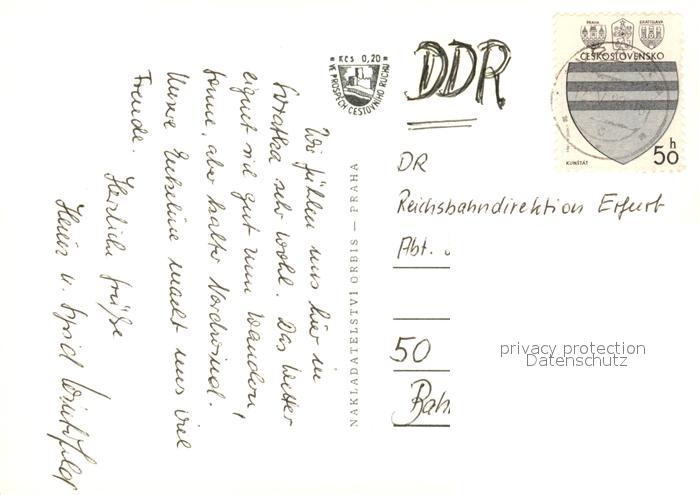 Wir fühlen uns hier in
Svratka sehr wohl. Das Wetter
eignet sich gut zum Wandern,
Sonne, aber kalter Nordwind.
Unsere Enkeline macht uns viel
Freude.
Herzliche Grüße
Heinz u.
NAKLADATELSTVÍ ORBIS — PRAHA
Kčs 0,20
VE PROSPĚCH CESTOVNÍHO RUCHU
DDR
PRAHA BRATISLAVA
ČESKOSLOVENSKO
KUNŠTÁT
50 h
DR
Reichsbahndirektion Erfurt
Abt.
50
Bah
privacy protection
Datenschutz